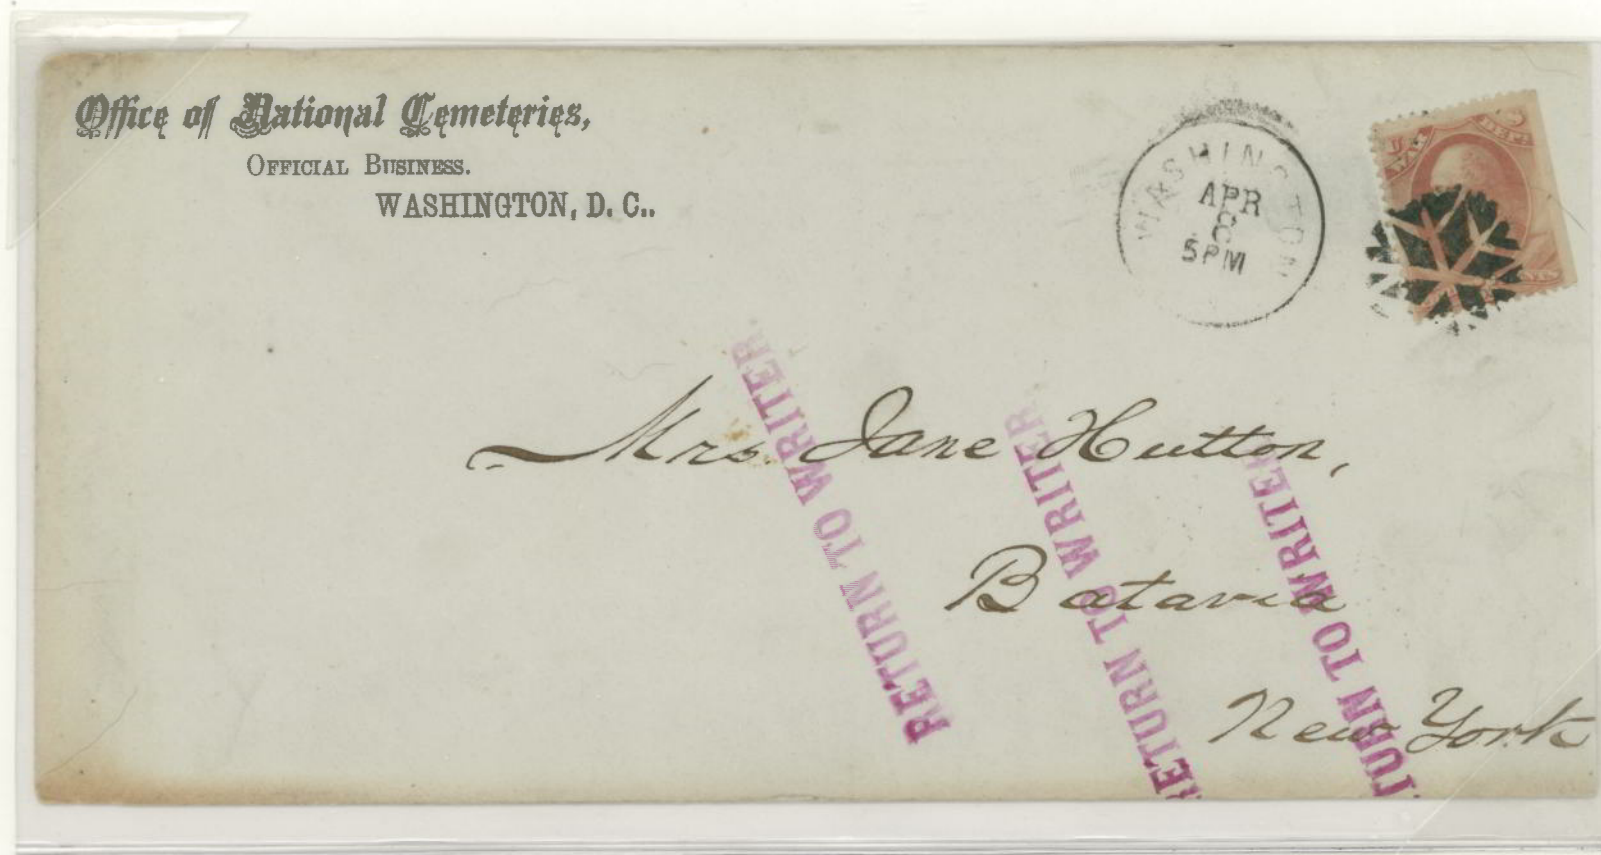 Office of National Cemeteries,
OFFICIAL BUSINESS.
WASHINGTON, D. C..
WASHINGTON
APR
8
5PM
U S
WAR DEPT.
Mrs. Jane Hutton,
Batavia
New York
RETURN TO WRITER
RETURN TO WRITER
TURN TO WRITER